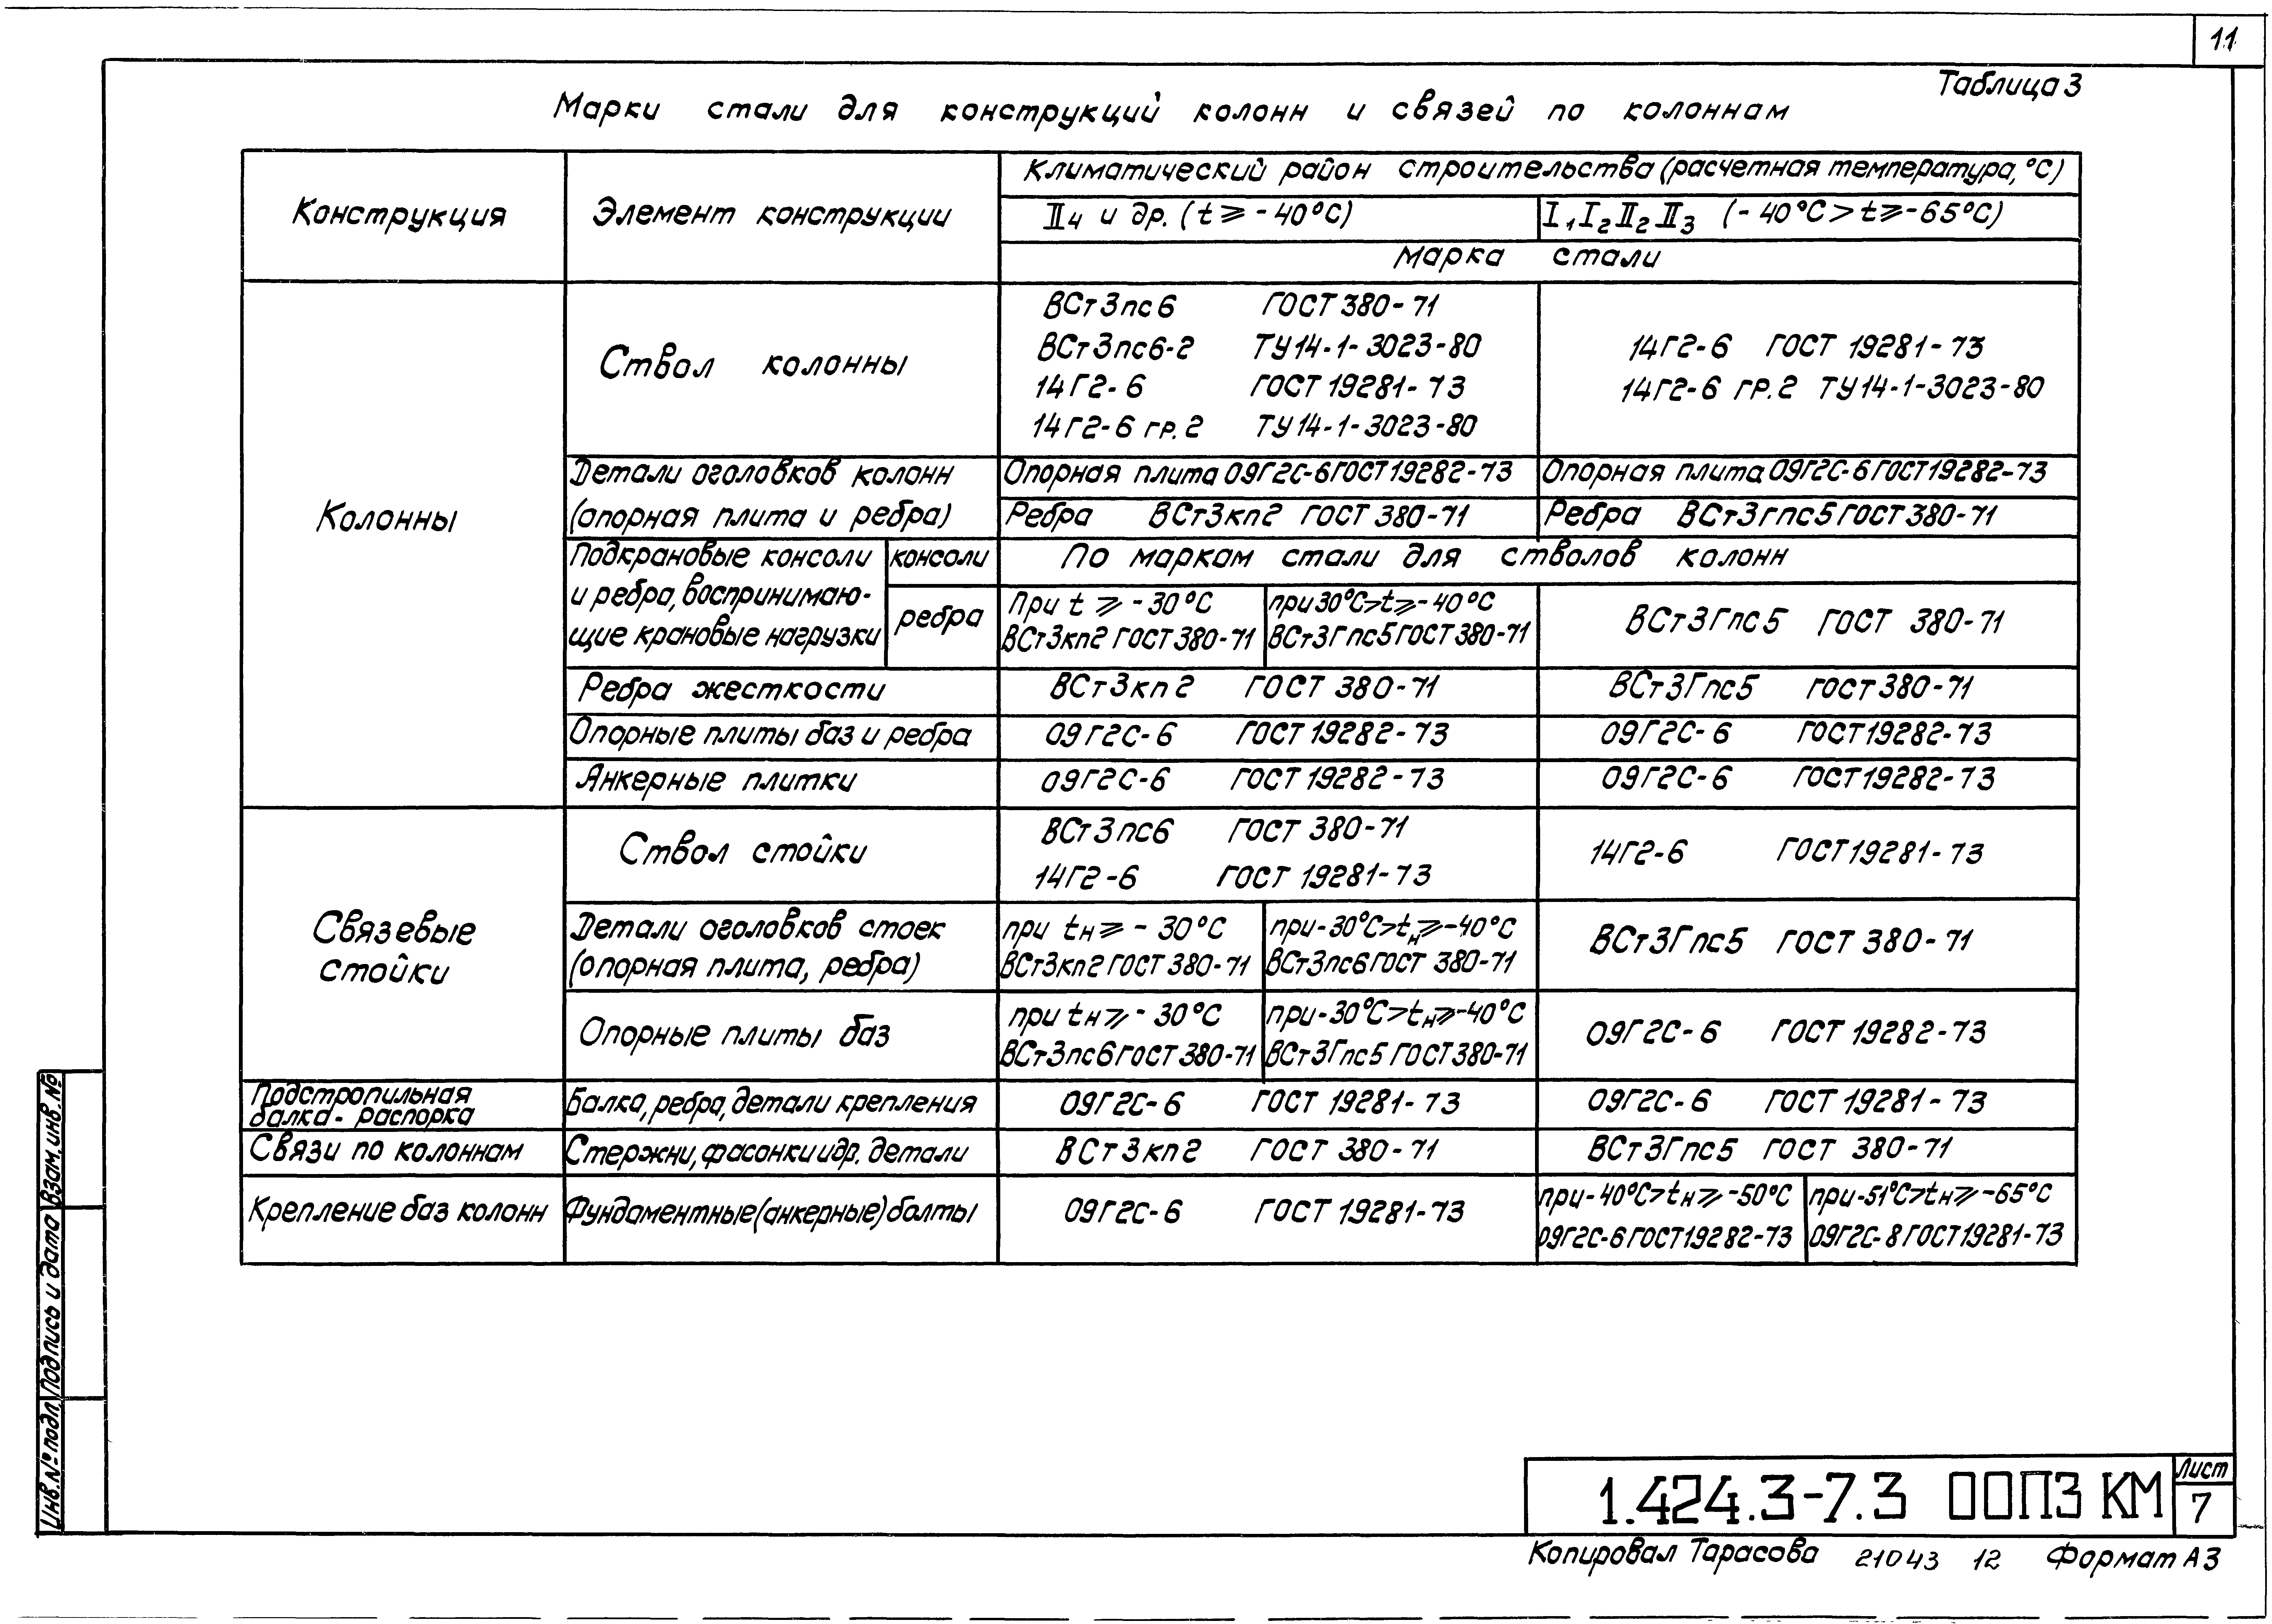 11
Таблица 3
Марки стали для конструкций колонн и связей по колоннам
Конструкция
Элемент конструкции
Климатический район строительства (расчетная температура, °С)
II4 и др. (t ⩾ -40°С)
I1 I2 II2 II3 (-40°С > t ⩾ -65°С)
Марка стали
Колонны
Ствол колонны
ВСт3пс6 ГОСТ 380-71
ВСт3пс6-2 ТУ14-1-3023-80
14Г2-6 ГОСТ 19281-73
14Г2-6 гр.2 ТУ14-1-3023-80
14Г2-6 ГОСТ 19281-73
14Г2-6 гр.2 ТУ14-1-3023-80
Детали оголовков колонн
(опорная плита и ребра)
Опорная плита 09Г2С-6 ГОСТ19282-73
Опорная плита 09Г2С-6 ГОСТ19282-73
Ребра ВСт3кп2 ГОСТ 380-71
Ребра ВСт3гпс5 ГОСТ 380-71
Подкрановые консоли
и ребра, воспринимаю-
щие крановые нагрузки
консоли
По маркам стали для стволов колонн
ребра
При t ⩾ -30°С
ВСт3кп2 ГОСТ 380-71
при 30°С>t⩾-40°С
ВСт3Гпс5 ГОСТ 380-71
ВСт3Гпс5 ГОСТ 380-71
Ребра жесткости
ВСт3кп2 ГОСТ 380-71
ВСт3Гпс5 ГОСТ 380-71
Опорные плиты баз и ребра
09Г2С-6 ГОСТ 19282-73
09Г2С-6 ГОСТ19282-73
Анкерные плитки
09Г2С-6 ГОСТ 19282-73
09Г2С-6 ГОСТ19282-73
Связевые
стойки
Ствол стойки
ВСт3пс6 ГОСТ 380-71
14Г2-6 ГОСТ 19281-73
14Г2-6 ГОСТ19281-73
Детали оголовков стоек
(опорная плита, ребра)
при tн ⩾ -30°С
ВСт3кп2 ГОСТ 380-71
при-30°С>tн⩾-40°С
ВСт3пс6 ГОСТ 380-71
ВСт3Гпс5 ГОСТ 380-71
Опорные плиты баз
при tн ⩾ -30°С
ВСт3пс6 ГОСТ 380-71
при-30°С>tн⩾-40°С
ВСт3Гпс5 ГОСТ 380-71
09Г2С-6 ГОСТ 19282-73
Подстропильная
балка-распорка
Балка, ребра, детали крепления
09Г2С-6 ГОСТ 19281-73
09Г2С-6 ГОСТ 19281-73
Связи по колоннам
Стержни, фасонки и др. детали
ВСт3кп2 ГОСТ 380-71
ВСт3Гпс5 ГОСТ 380-71
Крепление баз колонн
Фундаментные (анкерные) болты
09Г2С-6 ГОСТ 19281-73
при-40°С>tн⩾-50°С
09Г2С-6 ГОСТ19282-73
при-51°С>tн⩾-65°С
09Г2С-8 ГОСТ19281-73
Взам. инв. №
Подпись и дата
Инв. № подл.
1.424.3-7.3 00ПЗ КМ
Лист
7
Копировал Тарасова 21043 12 Формат А3